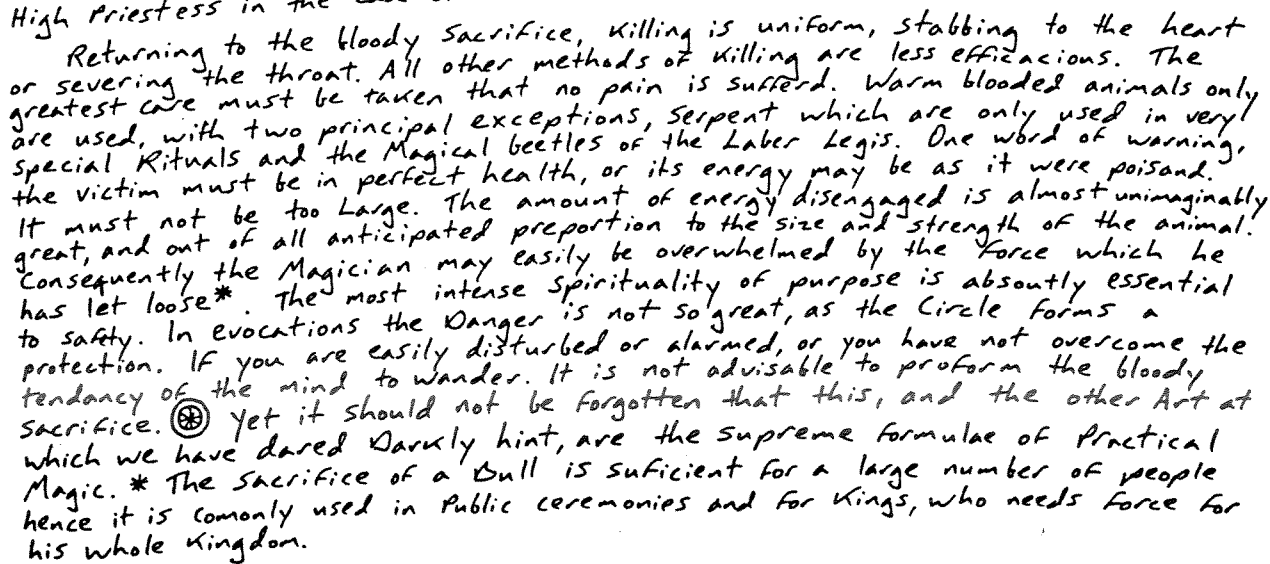 High Priestess in the
Returning to the bloody Sacrifice, Killing is uniform, stabbing to the heart
or severing the throat. All other methods of Killing are less efficacious. The
greatest care must be taken that no pain is sufferd. Warm blooded animals only
are used, with two principal exceptions, Serpent which are only used in very
special Rituals and the Magical beetles of the Laber Legis. One word of warning,
the victim must be in perfect health, or its energy may be as it were poisand.
It must not be too Large. The amount of energy disengaged is almost unimaginably
great, and out of all anticipated preportion to the size and strength of the animal.
Consequently the Magician may easily be overwhelmed by the Force which he
has let loose*. The most intense Spirituality of purpose is absoutly essential
to safty. In evocations the Danger is not so great, as the Circle Forms a
protection. If you are easily disturbed or alarmed, or you have not overcome the
tendancy of the mind to wander. It is not advisable to proform the bloody
Sacrifice. Yet it should not be forgotten that this, and the other Art at
which we have dared Darkly hint, are the supreme formulae of Practical
Magic. * The Sacrifice of a Bull is suficient for a large number of people
hence it is comonly used in Public ceremonies and for Kings, who needs force for
his whole Kingdom.